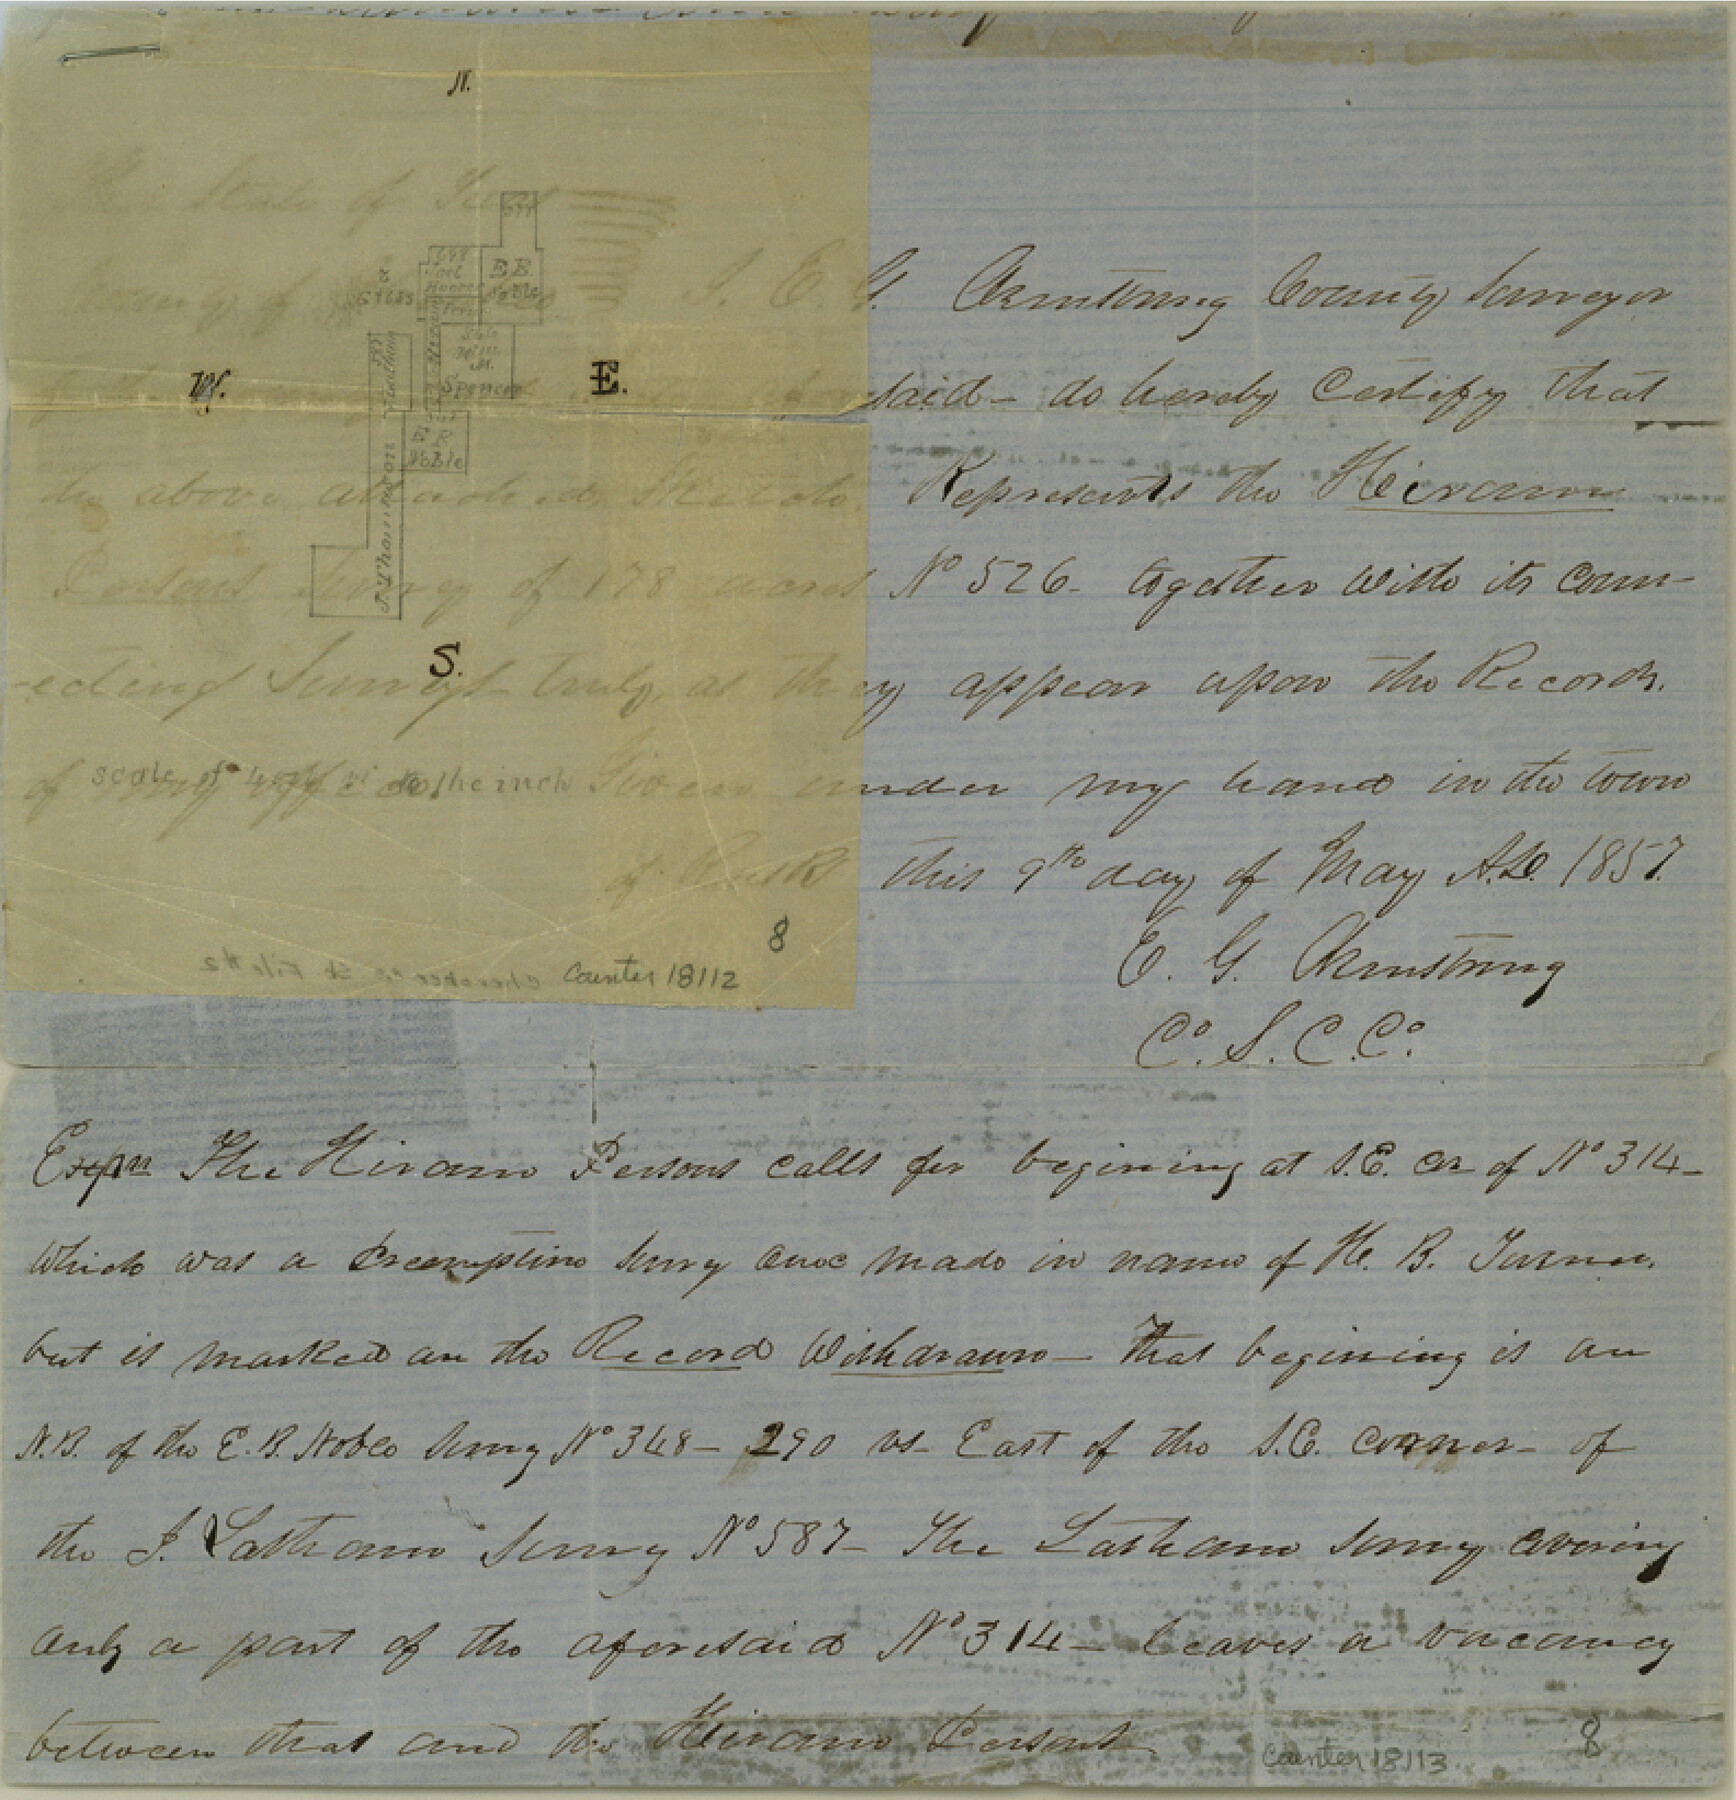 N.
The State of Texas
County of
I. E. G. Armstrong County Surveyor
said - do hereby Certify that
the above attached Sketch Represents the Hiram
Persons Survey of 178 acres No 526 - together with its conn-
-ecting Surveys truly as they appear upon the Records.
of my office. Given under my hand in the town
of Rusk this 9th day of May A.D. 1857.
E. G. Armstrong
Co. S. C. Co.
577
698
Joel
E.B.
Noble
Giles
W.
E.
587
J Latham
Hiram
526
Wm
M.
Spencer
R
Noble
J. Thompson
S.
scale of 4000 vs to the inch
8
Cherokee Co. Sk File #2
counter 18112
Expn The Hiram Persons calls for begining at S.E. cor of No 314 -
which was a Preemption Survey once made in name of H. B. Turner.
but is marked on the Record Withdrawn - That begining is on
N.B. of the E. B. Noble Survey No 348 - 290 vs - East of the S.E. corner - of
the J. Latham Survey No 587 - The Latham Survey covering
only a part of the aforesaid No 314 - leaves a vacancy
between that and the Hiram Persons
counter 18113
8